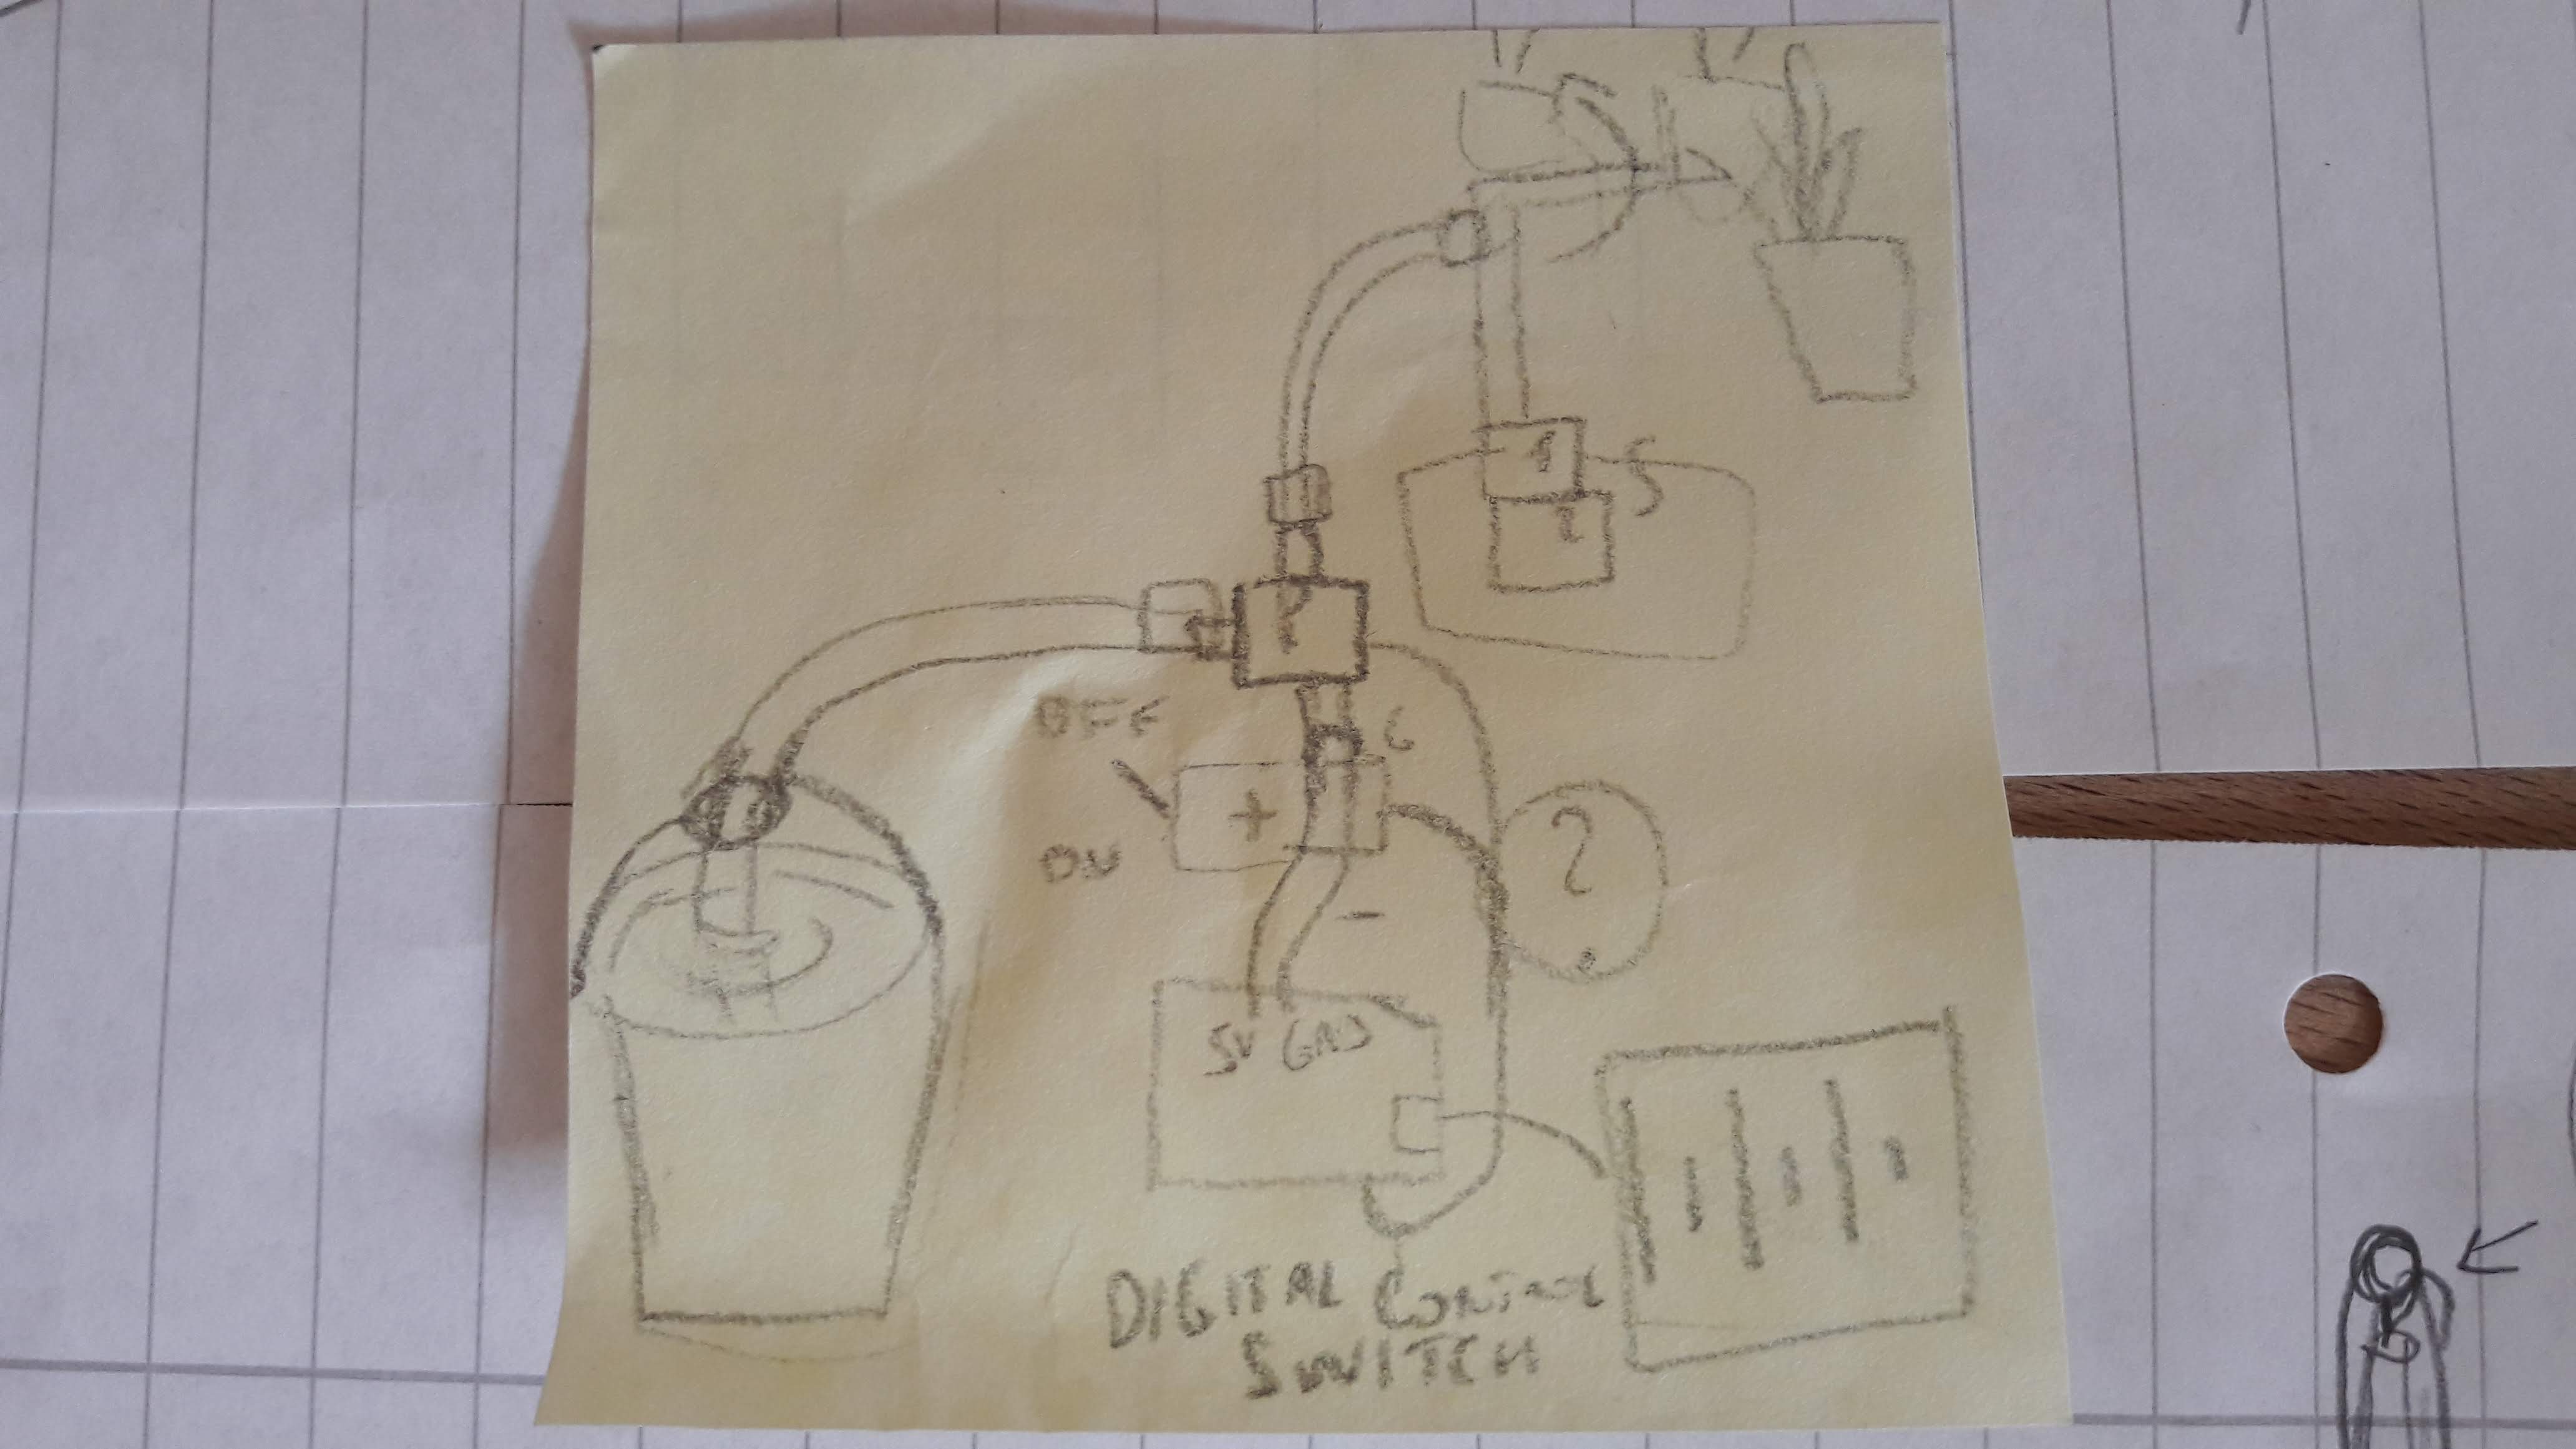 P
OFF
+
ON
-
5V GND
DIGITAL CONTROL
SWITCH